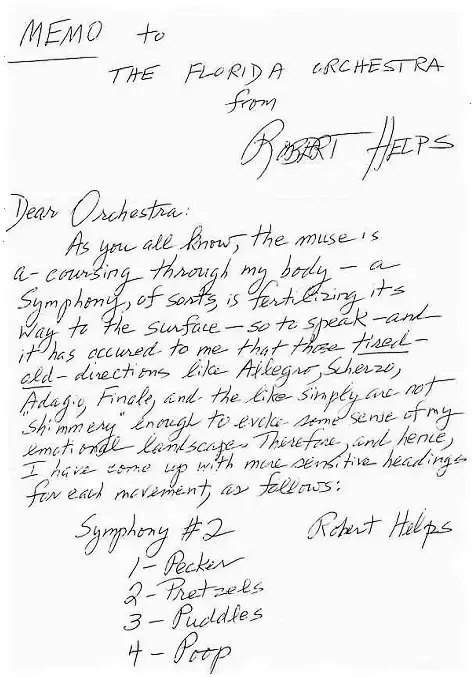 MEMO to
THE FLORIDA ORCHESTRA
from
ROBERT HELPS
Dear Orchestra:
As you all know, the muse is
a-coursing through my body – a
Symphony, of sorts, is fertilizing its
way to the surface – so to speak – and
it has occured to me that those tired-
old-directions like Allegro, Scherzo,
Adagio, Finale, and the like simply are not
"shimmery" enough to evoke some sense of my
emotional landscape. Therefore, and hence,
I have come up with more sensitive headings
for each movement, as follows:
Symphony #2 Robert Helps
1 – Pecker
2 – Pretzels
3 – Puddles
4 – Poop